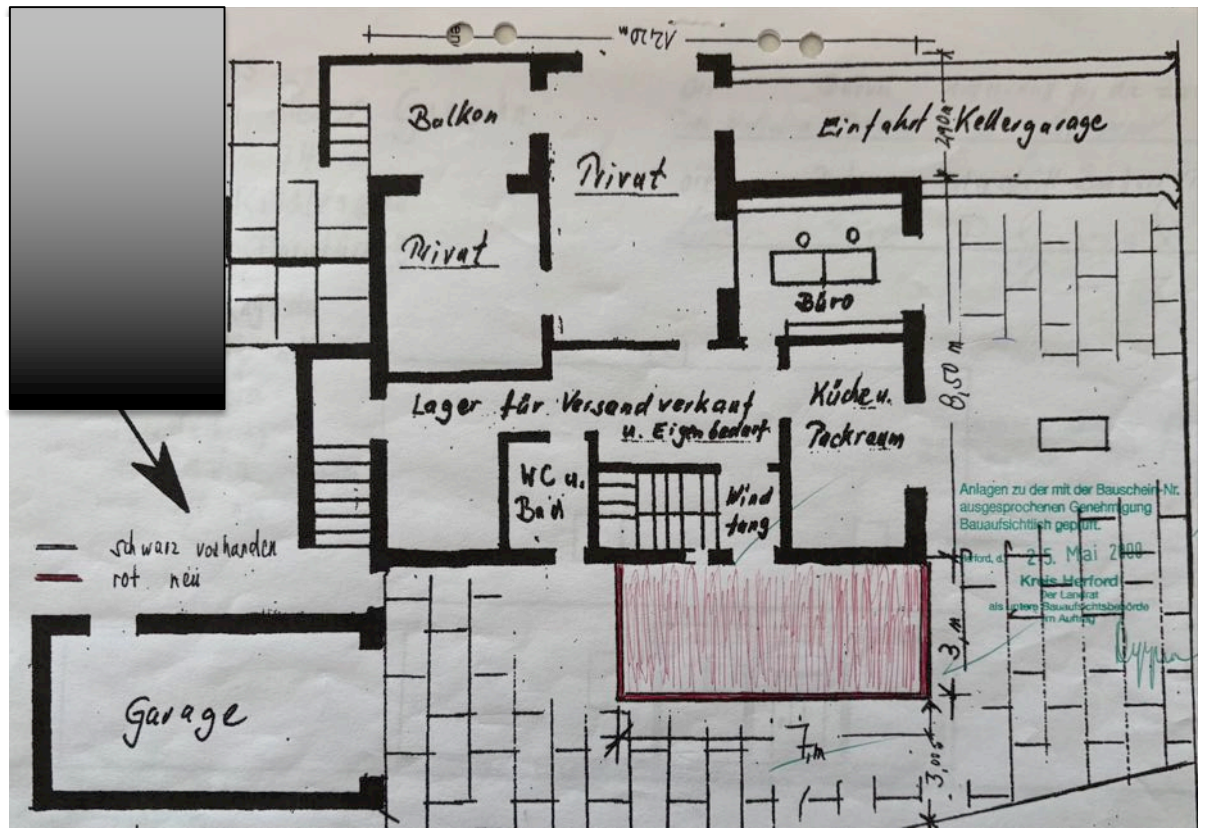 12,20 m
Balkon
Einfahrt Kellergarage
2,90 m
Privat
Privat
Büro
8,50 m
Lager für Versandverkauf
u. Eigenbedarf
Küche u.
Packraum
WC u.
Bad
Wind
fang
Anlagen zu der mit der Bauschein-Nr.
ausgesprochenen Genehmigung
Bauaufsichtlich geprüft.
Herford, d.
25. Mai 2000
Kreis Herford
Der Landrat
als untere Bauaufsichtsbehörde
im Auftrag
schwarz vorhanden
rot neu
3,m
Garage
7,m
3,00